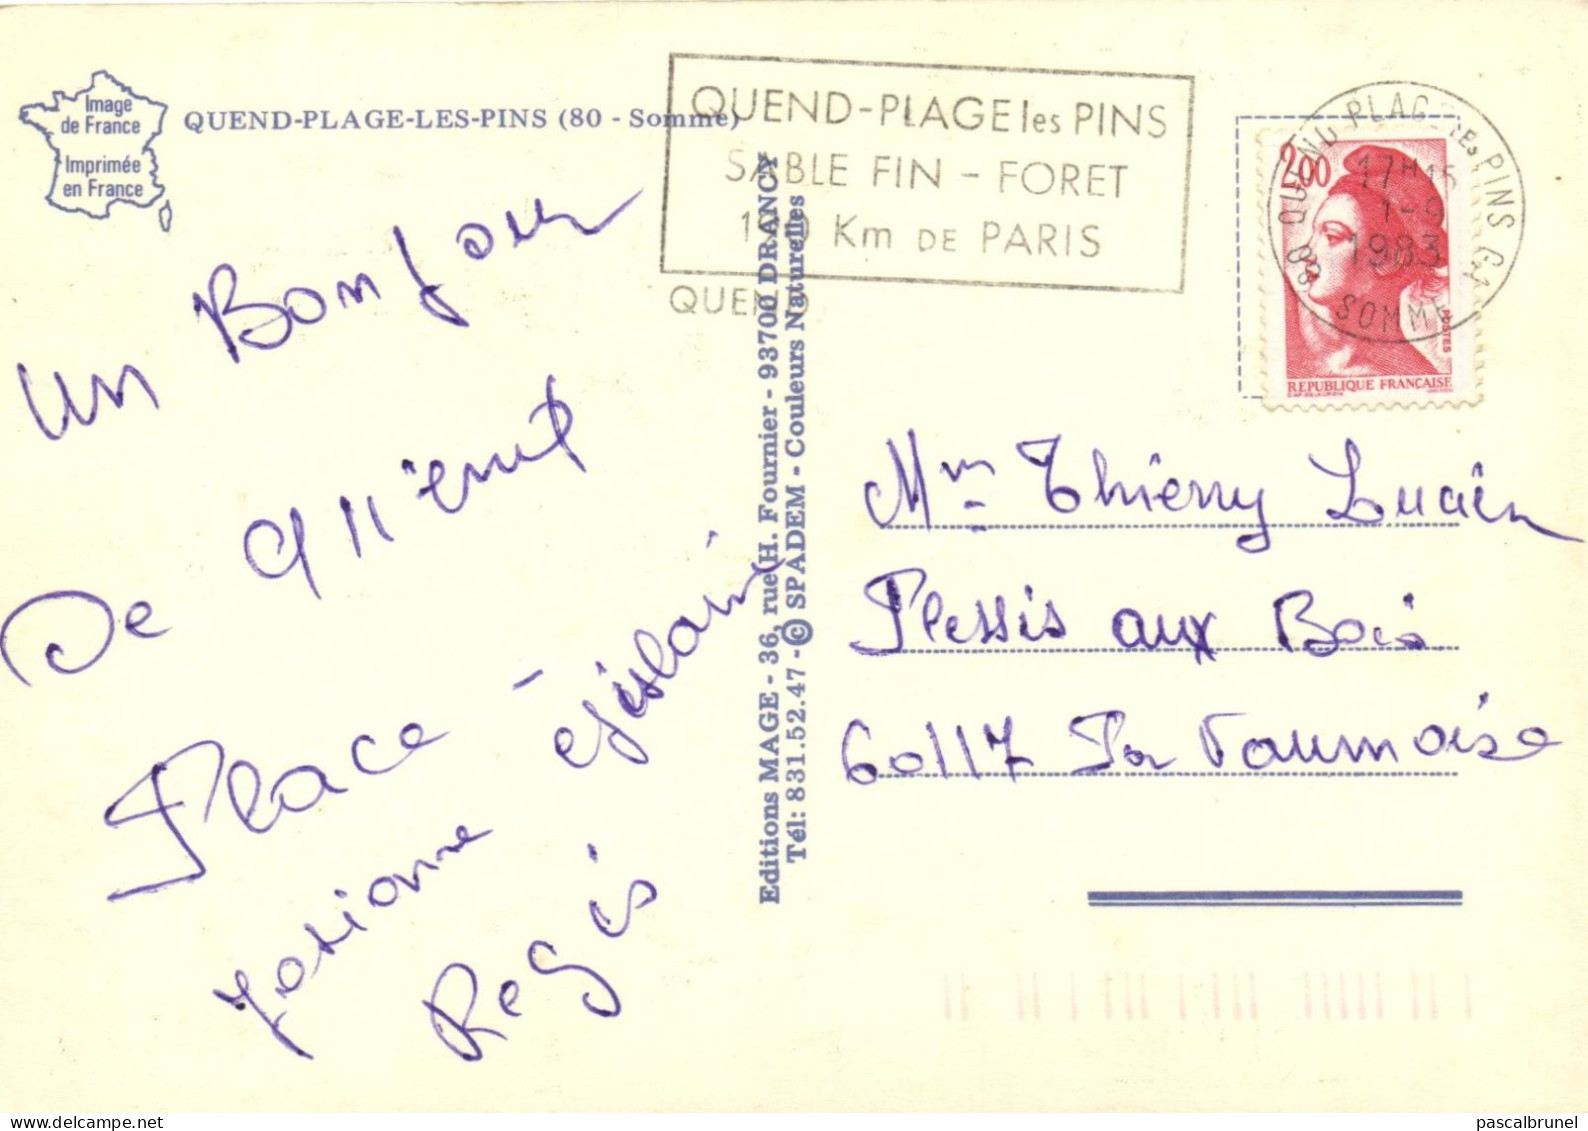 Image
de France
Imprimée
en France
QUEND-PLAGE-LES-PINS (80 - Somme)
QUEND-PLAGE les PINS
SABLE FIN - FORET
Km DE PARIS
QUEND
QUEND PLAGE les PINS
17H15
1-9
1983
80 SOMME
2.00
POSTES
REPUBLIQUE FRANÇAISE
Un Bonjour
De
Place
Josianne
Régis
Editions MAGE - 36, rue H. Fournier - 93700 DRANCY
Tél: 831.52.47 - © SPADEM - Couleurs Naturelles
Mm Thierry Lucien
Plessis aux Bois
60117 Par Vaumoise
pascalbrunel